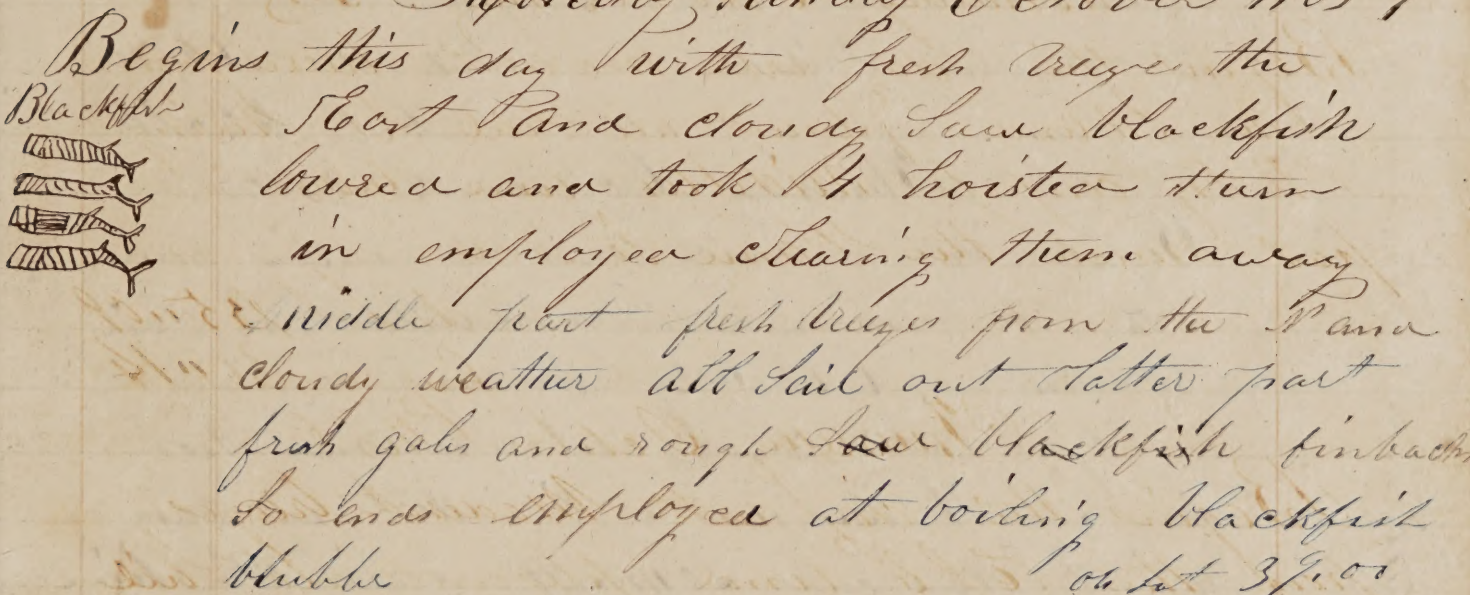 Sunday October
Begins this day with fresh breeze the
Blackfish
East and cloudy Saw blackfish
lowred and took 4 hoisted them
in employed clearing them away
middle part fresh breezes from the N and
cloudy weather all Sail out latter part
fresh gales and rough Saw blackfish finbacks
So ends employed at boiling blackfish
blubbe
ob Lat 39.00